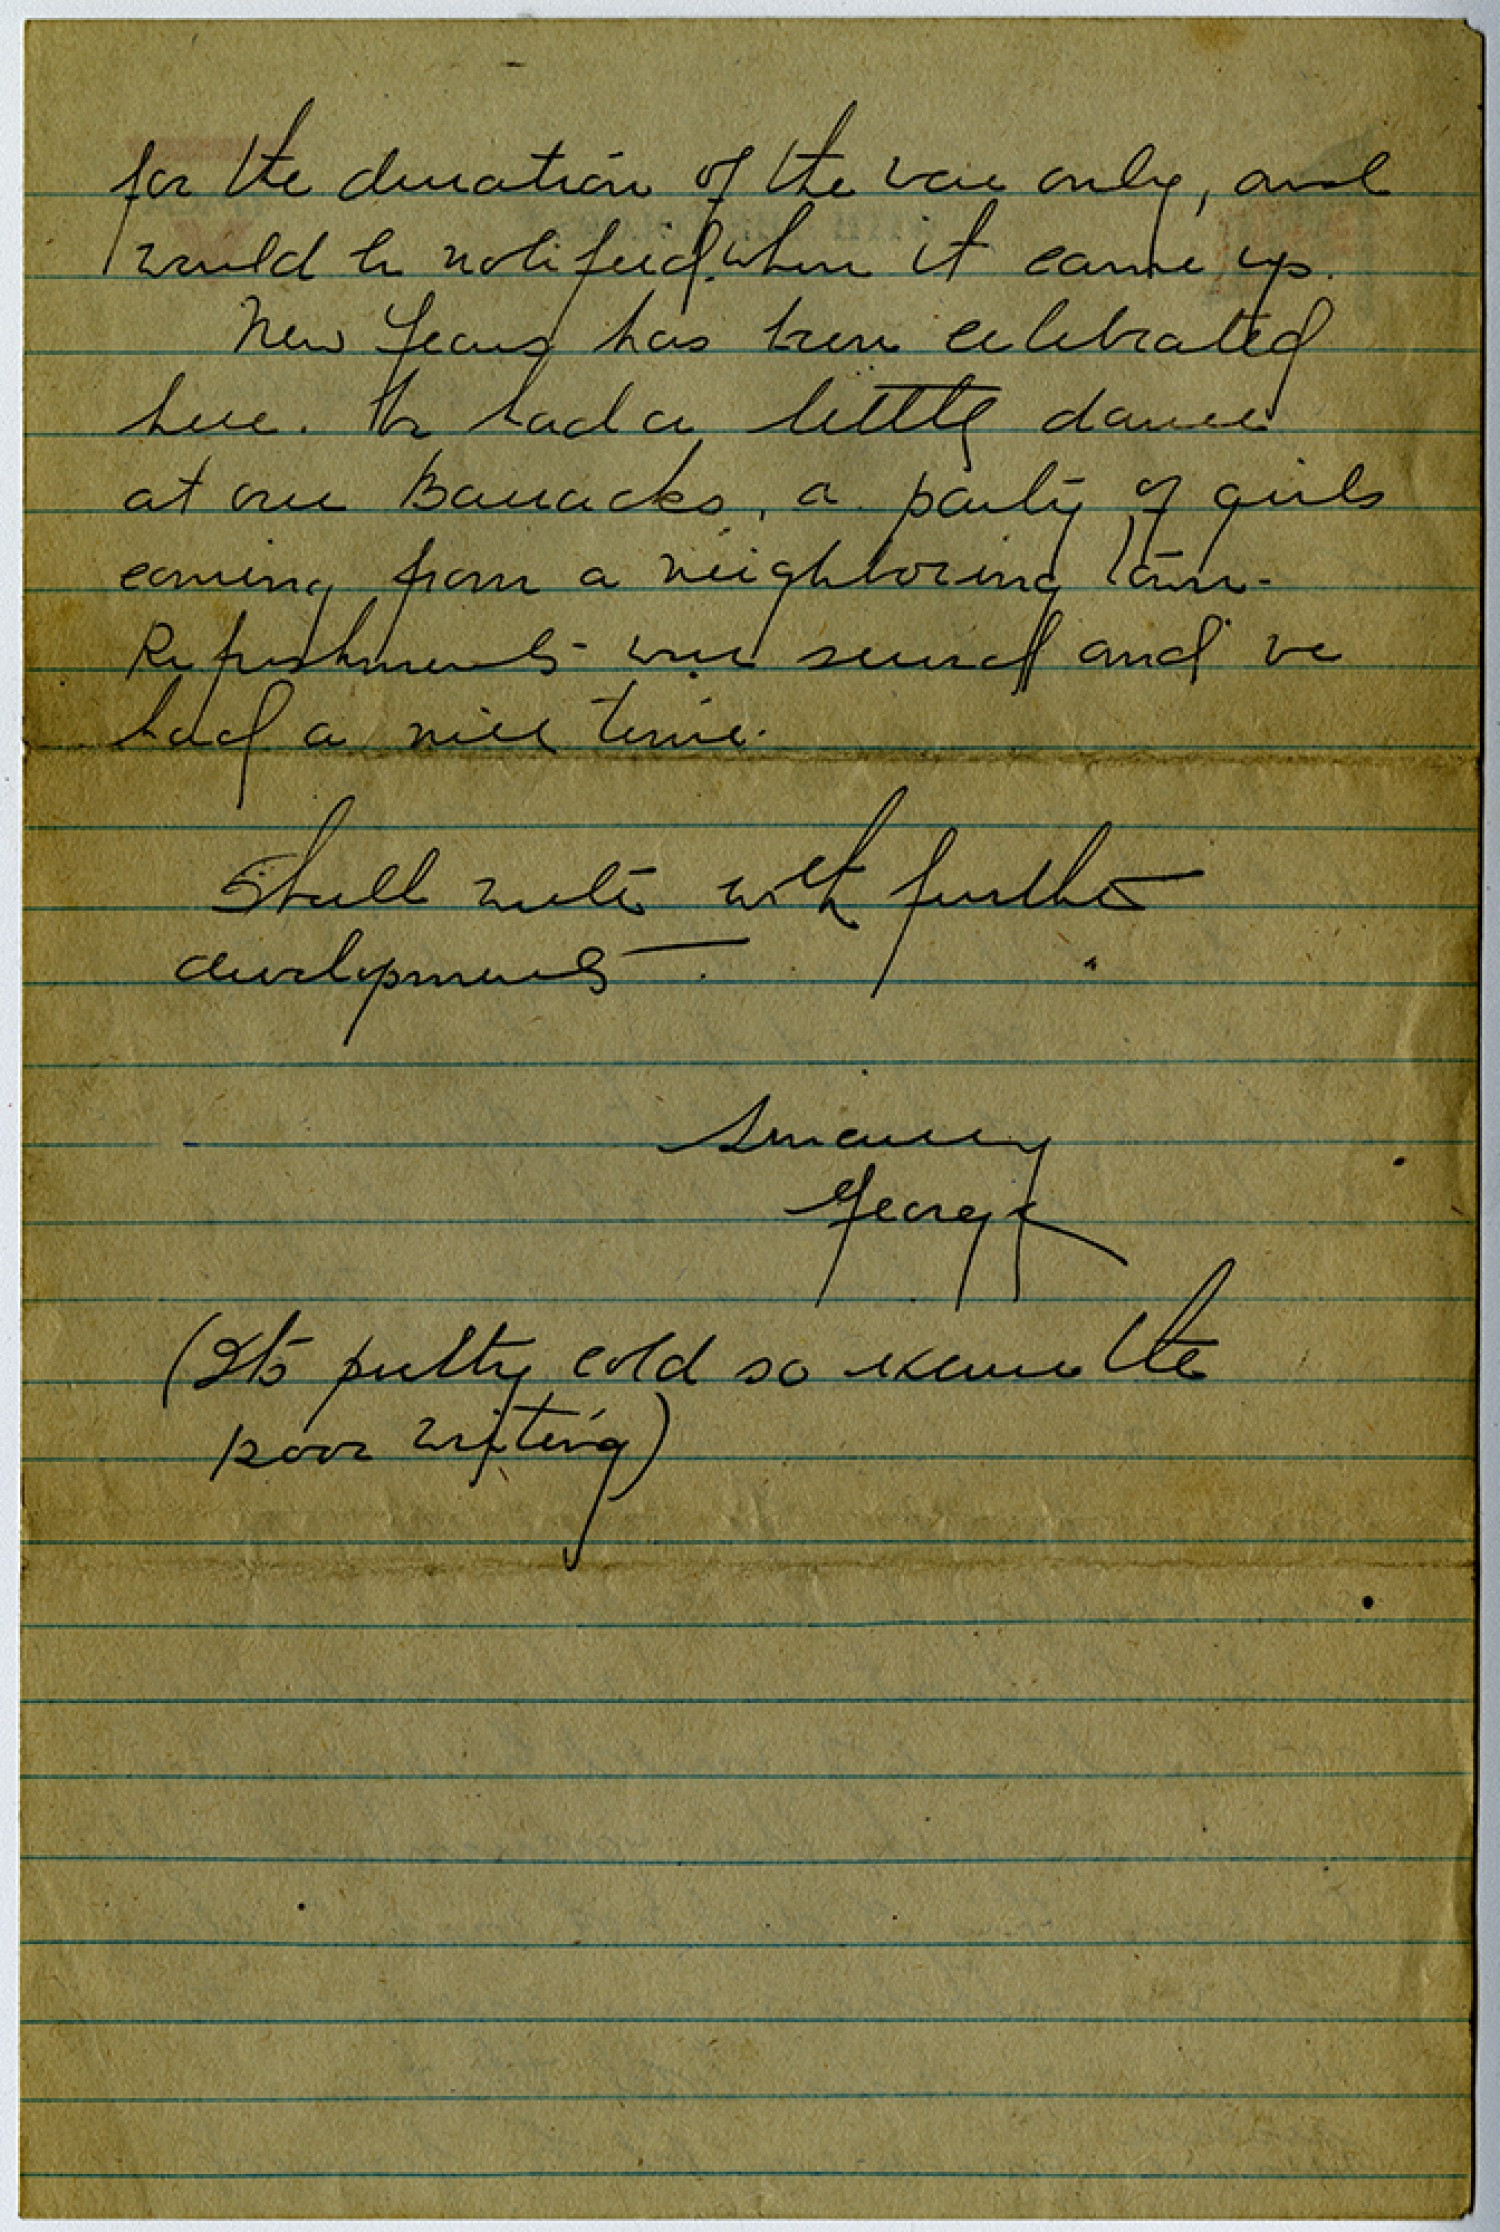 for the duration of the war only, and
would be notified when it came up.
New Years has been celebrated
here. We had a little dance
at our Barracks, a party of girls
coming from a neighboring town.
Refreshments were served and we
had a nice time.
Shall write with further
developments.
Sincerely
George
(Its pretty cold so excuse the
poor writing)